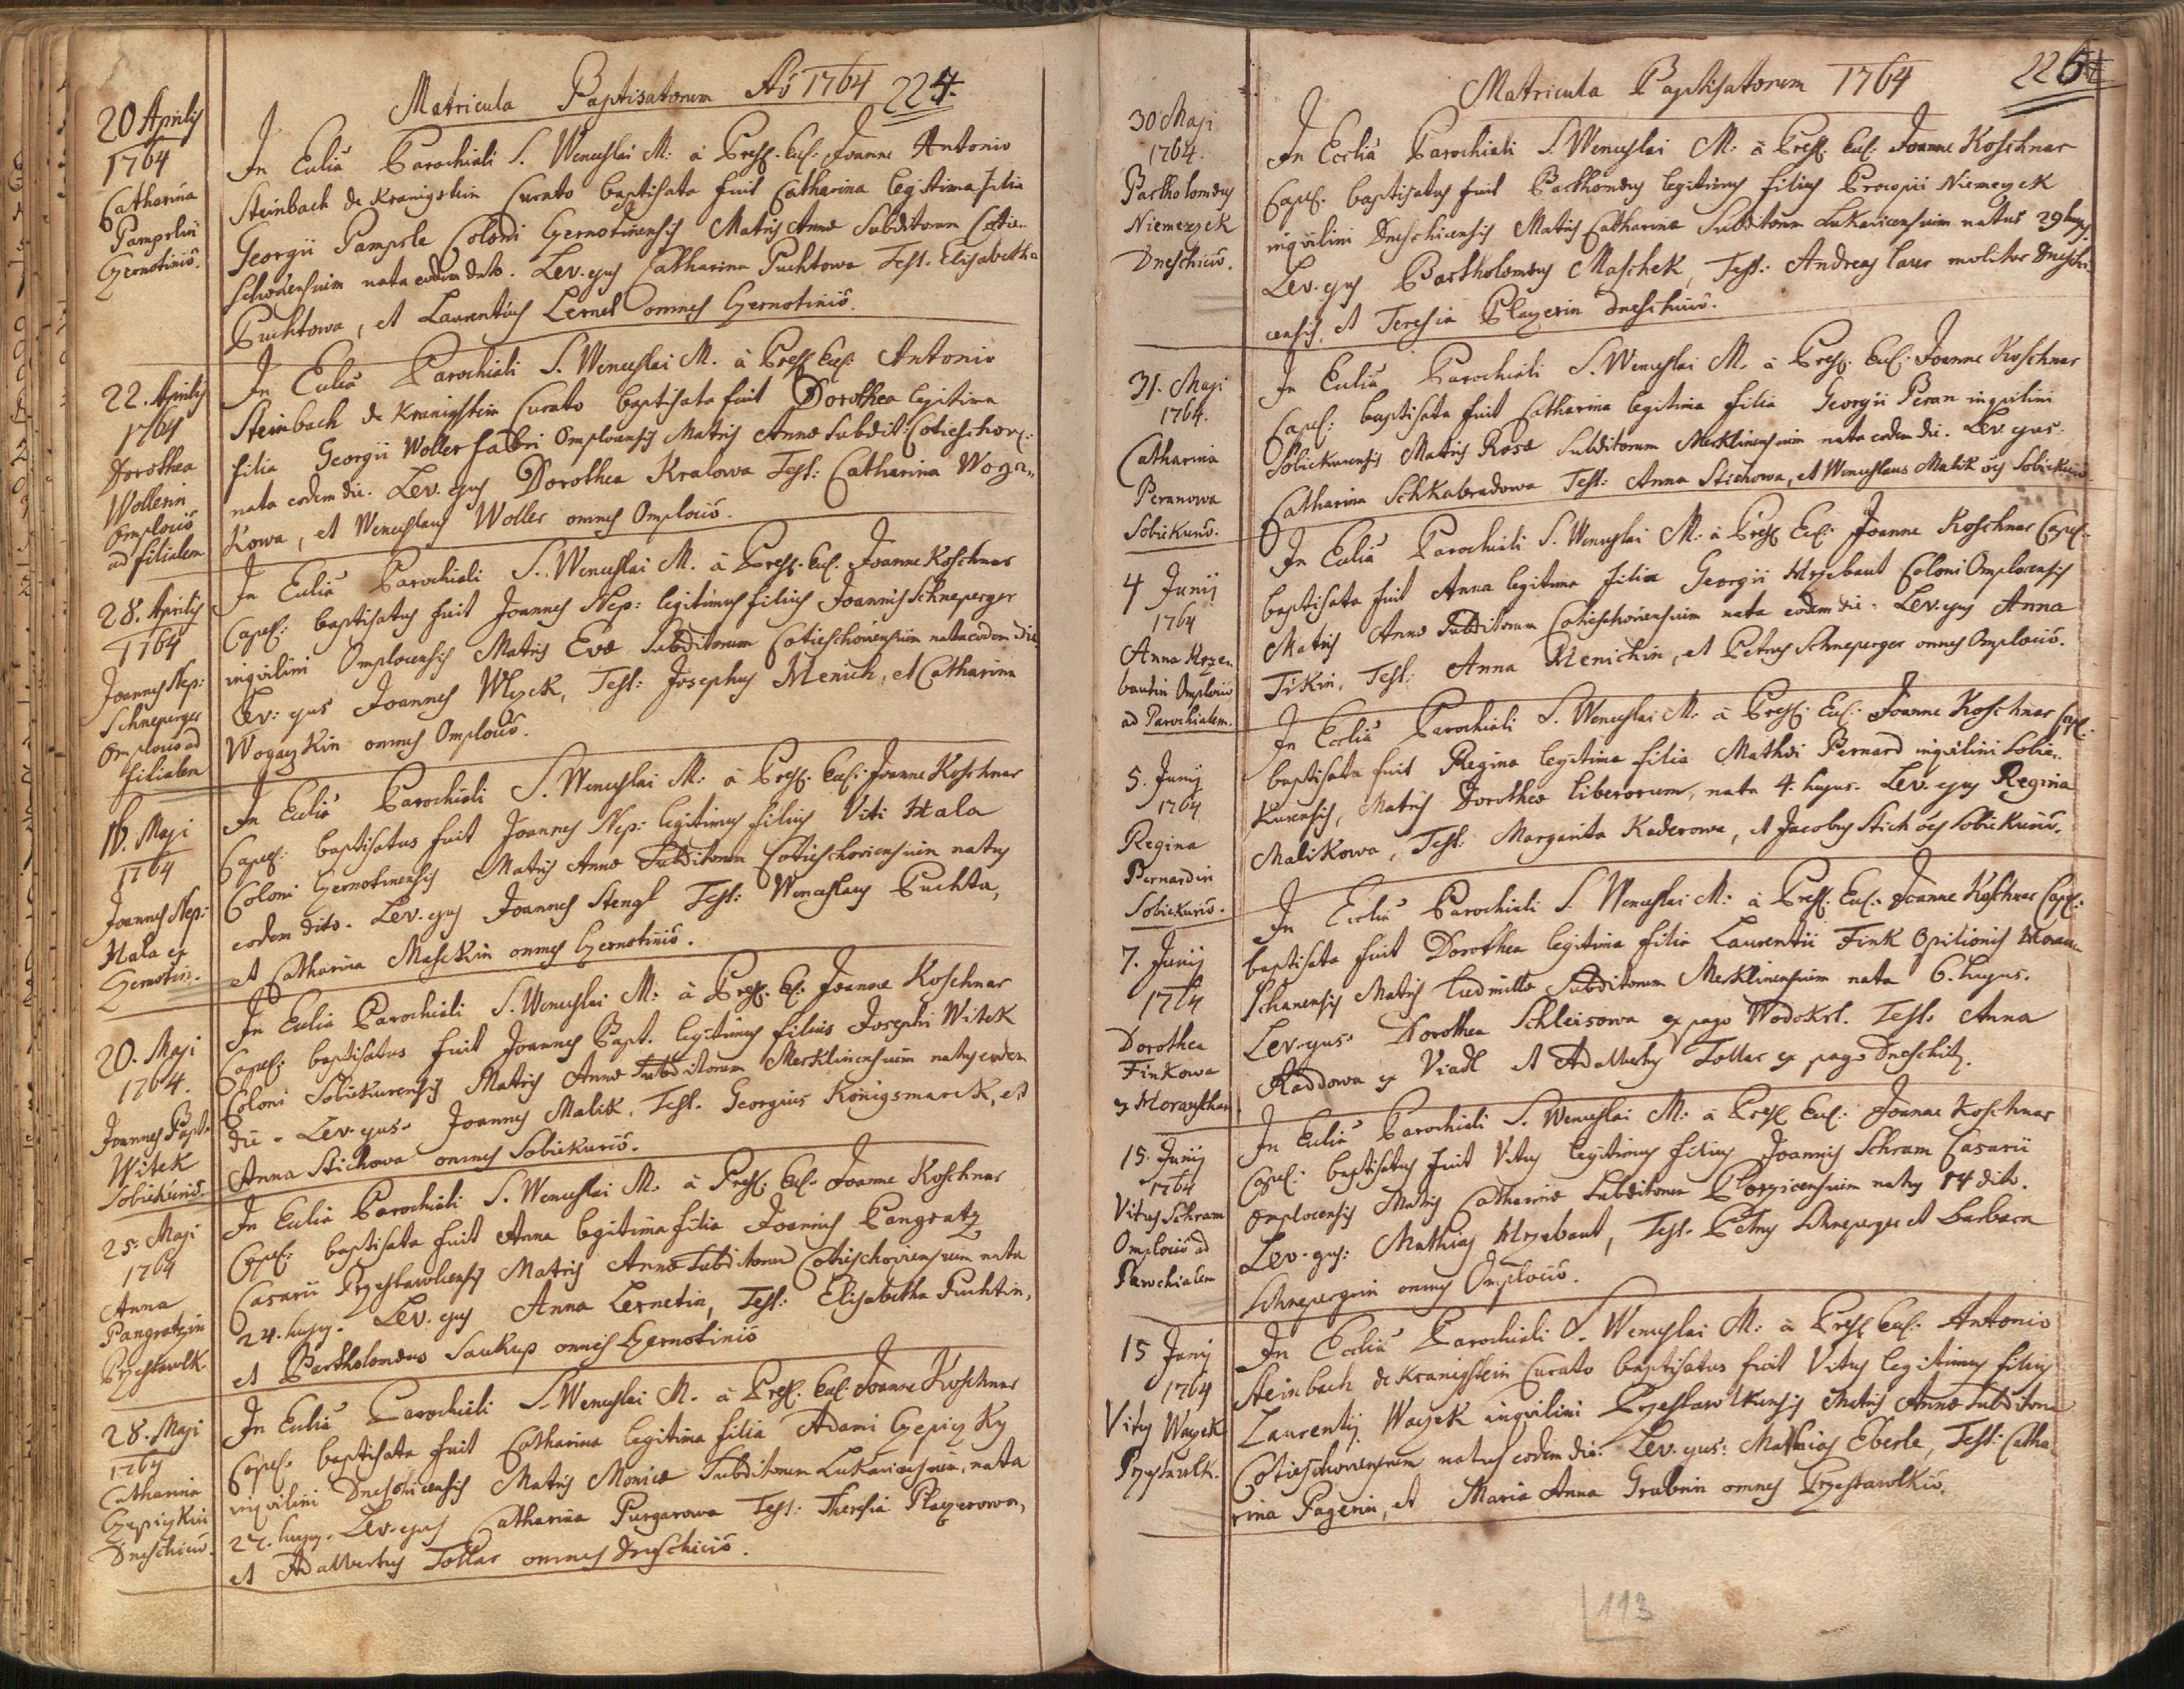 Matricula Baptisatorum Aō 1764 224.
20 Aprilis
1764
Catharina
Pampslin
Czernotinio.
In Ecclia Parochiali S. Wenceslai M: à Presb. Eccl: Joanne Antonio
Steinbach de Kranigstein Curato baptisata fuit Catharina legitima filia
Georgii Pampsle Coloni Czernotinensis Matris Annæ Subditorum Cotie-
schoviensium nata eodem dato. Lev. ejus Catharina Puchtowa Test. Elisabetha
Puchtowa, et Laurentius Lernet omnes Czernotinio.
22. Aprilis
1764
Dorothea
Wollerin
Omplocio
ad filialem
In Ecclia Parochiali S. Wenceslai M. à Presb. Eccl: Antonio
Steinbach de Kranigstein Curato baptisata fuit Dorothea legitima
filia Georgii Woller fabri Omplocensis Matris Annæ Subdit: Cotieschov:
nata eodem die. Lev. ejus Dorothea Kralowa Test: Catharina Woga-
kowa, et Wenceslaus Woller omnes Omplocio.
28. Aprilis
1764
Joannes Nep:
Schneperger
Omplocio ad
filialem
In Ecclia Parochiali S. Wenceslai M. à Presb. Eccl. Joanne Koschner
Capel: baptisatus fuit Joannes Nep: legitimus filius Joannis Schneperger
inqvilini Omplocensis Matris Evæ Subditorum Cotieschoviensium natus eodem die
Lev: ejus Joannes Wlczek, Test: Josephus Menich, et Catharina
Wogaczkin omnes Omplocio.
16. Maji
1764
Joannes Nep:
Hala ex
Czernotin.
In Ecclia Parochiali S. Wenceslai M: à Presb. Eccl: Joanne Koschner
Capel: baptisatus fuit Joannes Nep: legitimus filius Viti Hala
Coloni Czernotinensis Matris Annæ Subditorum Cotieschoviensium natus
eodem dito. Lev. ejus Joannes Stengl Test: Wenceslaus Puchta,
et Catharina Maschkin omnes Czernotinio.
20. Maji
1764.
Joannes Bapt.
Witek
Sobiekurio.
In Ecclia Parochiali S. Wenceslai M: à Presb. Ecl: Joanne Koschner
Capel: baptisatus fuit Joannes Bapt. legitimus filius Josephi Witek
Coloni Sobiekurensis Matris Annæ Subditorum Merklinensium natus eodem
die. Lev. ejus. Joannes Malik, Test. Georgius Königsmarck, et
Anna Stichowa omnes Sobiekurio.
25. Maji
1764
Anna
Pangratzin
Przestawlk.
In Ecclia Parochiali S. Wenceslai M. à Presb: Eccl. Joanne Koschner
Capel: baptisata fuit Anna legitima filia Joannis Pangratz
Casarii Przestawlcensis Matris Annæ Subditorum Cotieschoviensium nata
24. hujus. Lev. ejus Anna Lernetin, Test: Elisabetha Puchtin,
et Bartholomæus Saukup omnes Czernotinio
28. Maji
1764
Catharina
Czepiczkin
Dneschicio.
In Ecclia Parochiali S. Wenceslai M. à Presb. Eccl: Joanne Koschner
Capel. baptisata fuit Catharina legitima filia Adami Czepiczky
inqvilini Dneschicensis Matris Monicæ Subditorum Lukavicensium, nata
27. hujus. Lev. ejus Catharina Purgarowa Test: Theresia Playerowa,
et Adalbertus Tollar omnes Dneschicio.
Matricula Baptisatorum 1764 226
30 Maji
1764.
Bartholomæus
Niemeczek
Dneschicio.
In Ecclia Parochiali S. Wenceslai M. à Presb. Eccl. Joanne Koschner
Capel. baptisatus fuit Barthomæus legitimus filius Procopii Niemeczek
inqvilini Dneschicensis Matris Catharinæ Subditorum Lukavicensium natus 29 hujus.
Lev. ejus Bartholomæus Maschek, Test: Andreas Caur molitor Dneschi-
censis, et Teresia Playerin Dneschicio.
31. Maji
1764.
Catharina
Peranowa
Sobiekurio.
In Ecclia Parochiali S. Wenceslai M. à Presb: Eccl: Joanne Koschner
Capel: baptisata fuit Catharina legitima filia Georgii Peran inqvilini
Sobiekurensis Matris Rosæ Subditorum Merklinensium nata eodem die. Lev. ejus.
Catharina Schkabradowa Test: Anna Stichowa, et Wenceslaus Malik oēs Sobiekurio.
4 Junij
1764
Anna Hrze-
bautin Omplocio
ad Parochialem.
In Ecclia Parochiali S. Wenceslai M: à Presb Ecl: Joanne Koschner Capel.
baptisata fuit Anna legitima filia Georgii Hrzebaut Coloni Omplocensis
Matris Annæ Subditorum Cotieschoviensium nata eodem die. Lev. ejus Anna
Fikin, Test: Anna Menichin, et Petrus Schneperger omnes Omplocio.
5. Junij
1764
Regina
Bernardin
Sobiekurio.
In Ecclia Parochiali S. Wenceslai M. à Presb: Eccl: Joanne Koschner Capl.
baptisata fuit Regina legitima filia Mathæi Bernard inqvilini Sobie-
kurensis, Matris Dorotheæ liberorum, nata 4. hujus. Lev. ejus Regina
Malikowa, Test: Margarita Kaderowa, et Jacobus Stich oēs Sobiekurio.
7. Junij
1764
Dorothea
Finkowa
ex Horauschan
In Ecclia Parochiali S. Wenceslai M: à Presb: Eccl. Joanne Koschner Capl:
baptisata fuit Dorothea legitima filia Laurentii Fink Opilionis Horau-
schanensis Matris Ludmillæ Subditorum Merklinensium nata 6. hujus.
Lev. ejus. Dorothea Schleisowa ex pago Wodokrt. Test. Anna
Raddowa ex Viadl et Adalbertus Tollar ex pago Dneschitz.
15. Junij
1764
Vitus Schram
Omplocio ad
Parochialem
In Ecclia Parochiali S. Wenceslai M: à Presb Eccl: Joanne Koschner
Capel: baptisatus fuit Vitus legitimus filius Joannis Schram Casarii
Omplocensis Matris Catharinæ Subditorum Ploszicensium natus 14 dito.
Lev. ejus: Mathias Hrzebaut, Test. Petrus Schneperger et Barbara
Schnepergrin omnes Omplocio.
15 Junij
1764
Vitus Waczek
Przestawlk.
In Ecclia Parochiali S. Wenceslai M: à Presb Eccl: Antonio
Steinbach de Kranigstein Curato baptisatus fuit Vitus legitimus filius
Laurentij Waczek inqvilini Przestawlkensis Matris Annæ Subditorum
Cotieschoviensium natus eodem die. Lev. ejus: Mathias Eberle, Test: Catha-
rina Pagerin, et Maria Anna Grubrin omnes Przestawlkio.
113